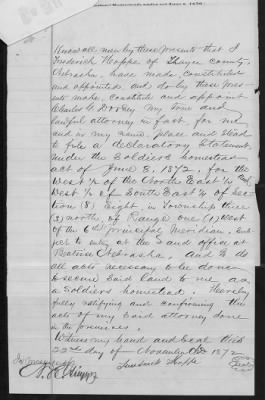 Know all men by these presents that I
Frederick Hoppe of Thayer county
Nebraska, have made, constituted
and appointed and do by these pres-
ents make, constitute and appoint
Charles G. Dorsey my true and
lawful attorney in fact, for me
and in my name, place and stead
to file a declaratory statement,
under the Soldiers homestead
act of June 8, 1872, for the
West ½ of the North East ¼ and
West ½ of South East ¼ of Sec-
tion (8) Eight, in Township three
(3) north, of Range one (1) West
of the 6th principal Meridian, sub-
ject to entry at the Land office at
Beatrice Nebraska, and to do
all acts necessary to be done
to secure said land to me as
a Soldiers homestead. hereby
fully ratifying and confirming the
acts of my said attorney done
in the premises.
Witness my hand and Seal this
22nd day of November AD 1872
In presence of
Frederick Hoppe